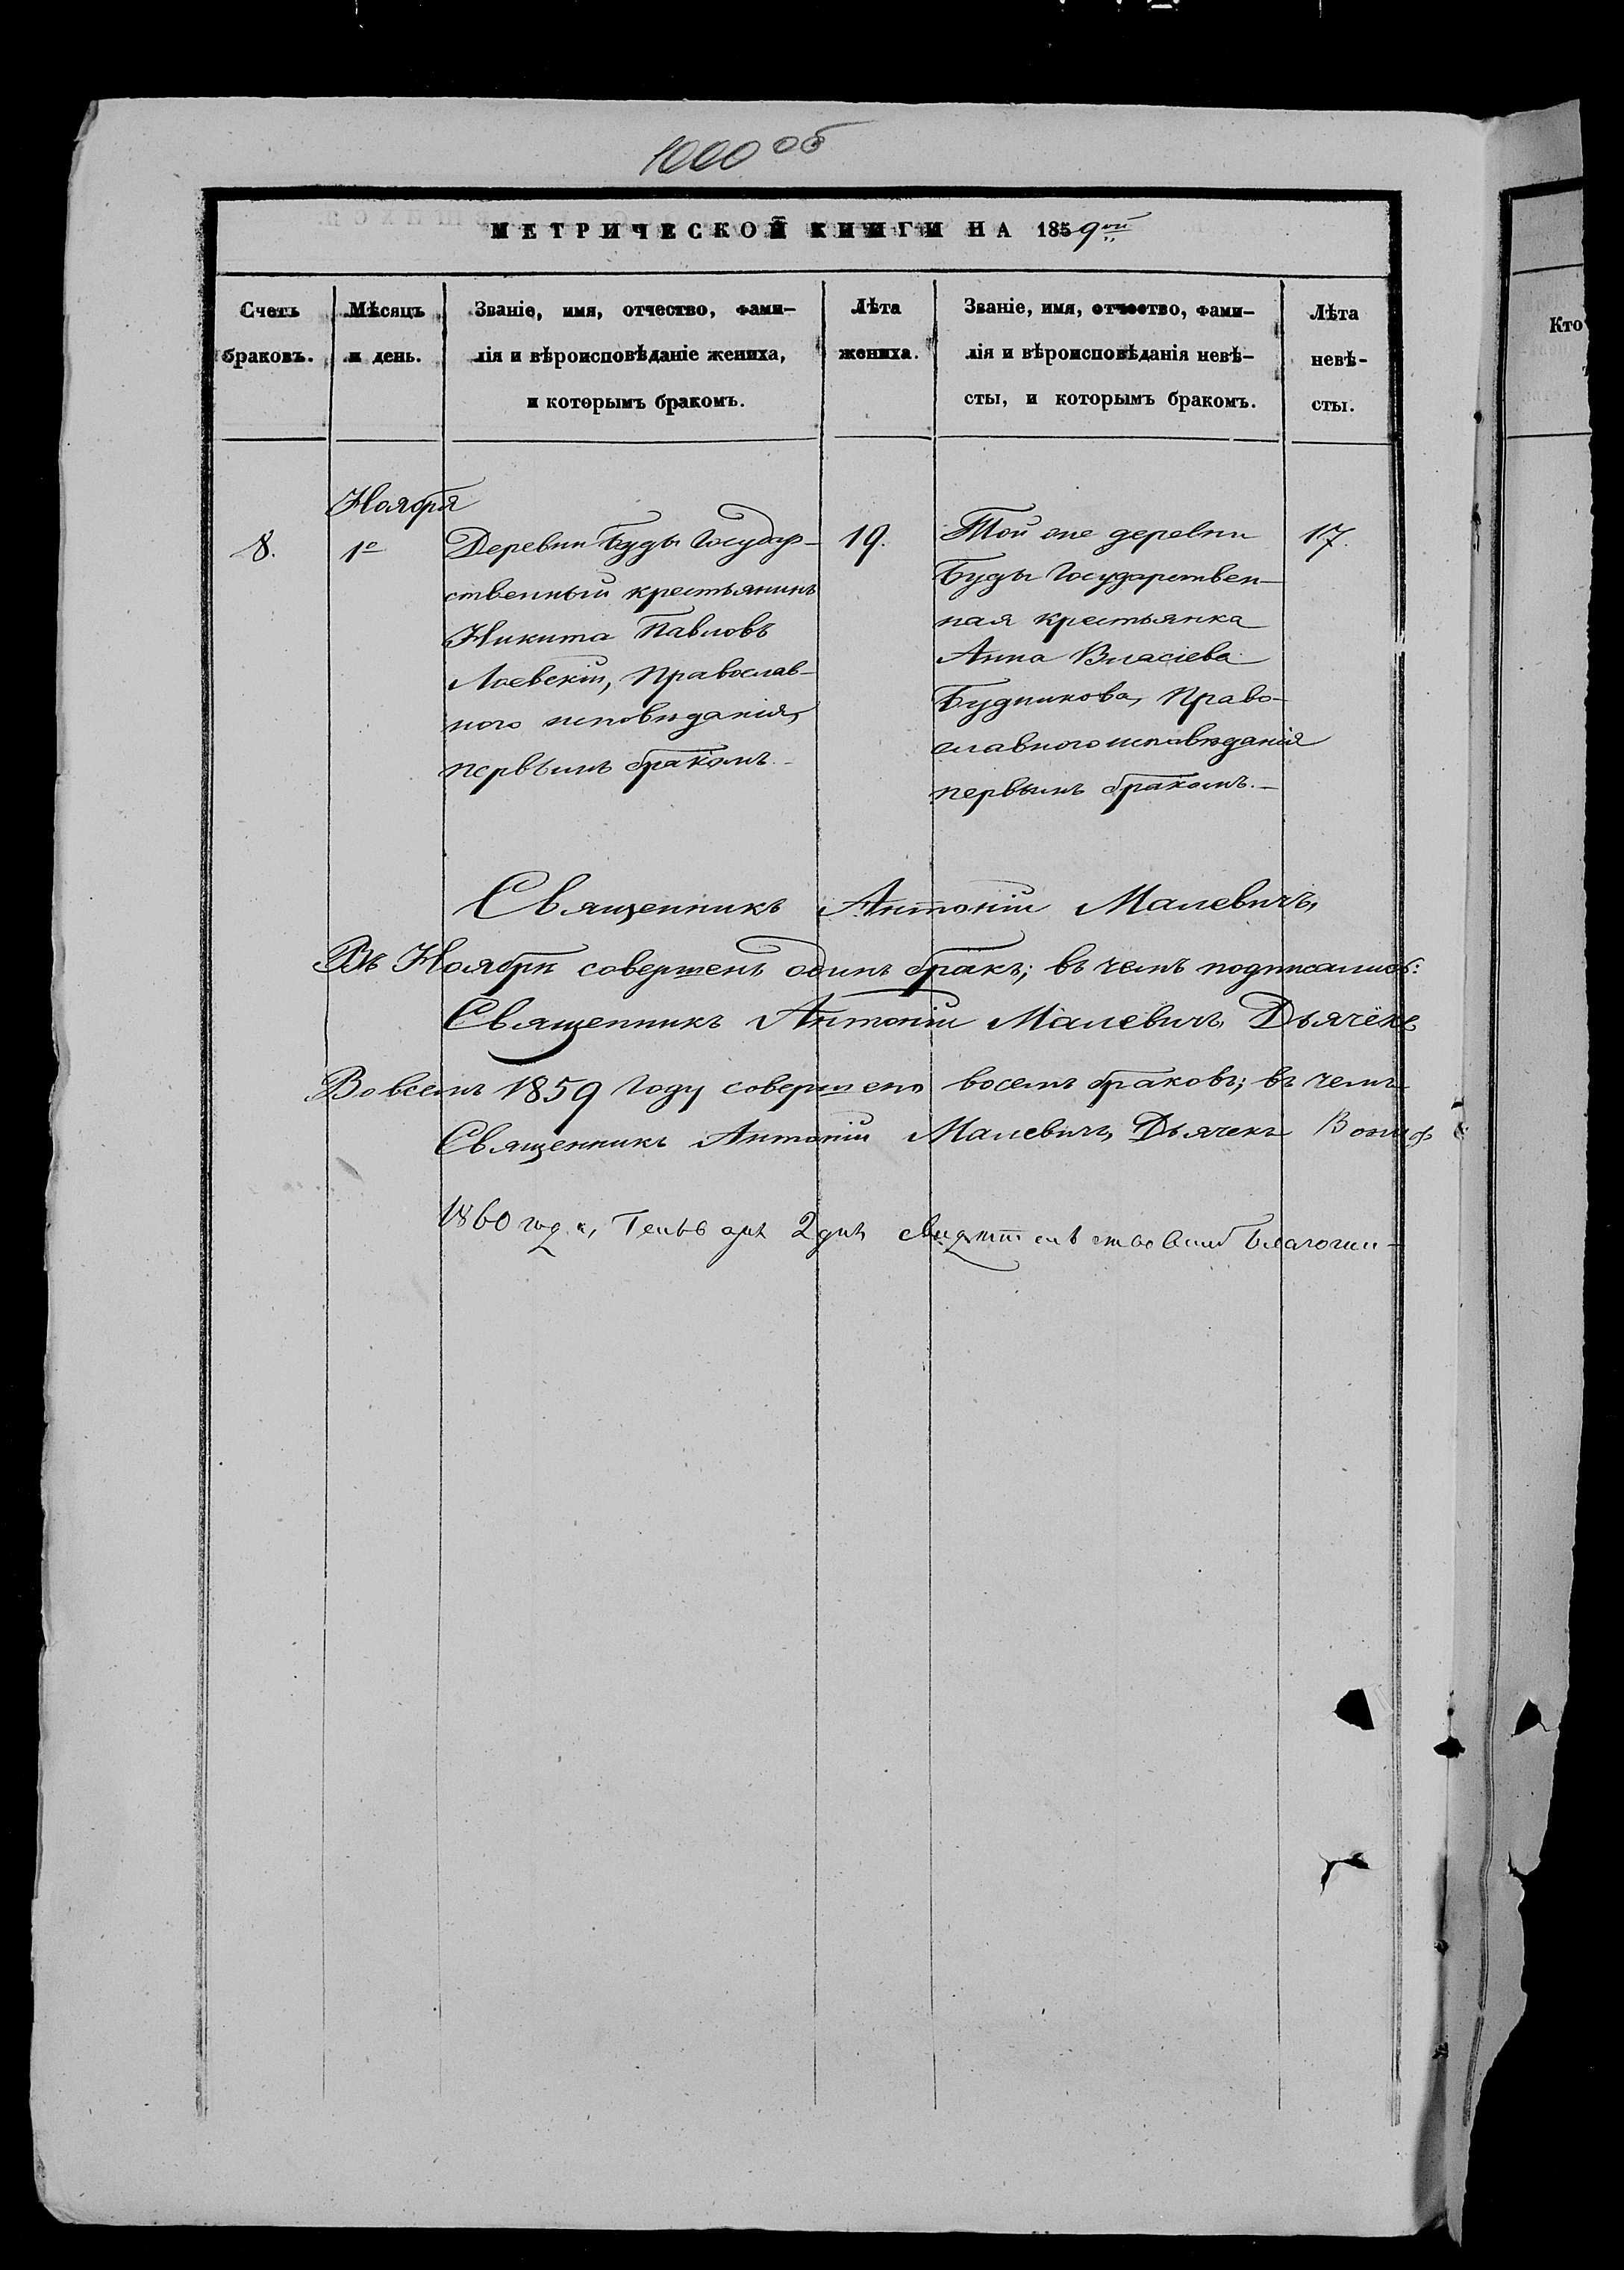 1000 об
МЕТРИЧЕСКОЙ КНИГИ НА 1859ый
Счетъ браковъ.
Мѣсяцъ и день.
Званіе, имя, отчество, фами-
лія и вѣроисповѣданіе жениха,
и которымъ бракомъ.
Лѣта жениха.
Званіе, имя, отчество, фами-
лія и вѣроисповѣданія невѣ-
сты, и которымъ бракомъ.
Лѣта невѣ-
сты.
Кто
Ноября
8.
1е
Деревни Буды Государ-
ственный крестьянинъ
Никита Павловъ
Лаевскій, Православ-
ного исповѣданія,
первымъ бракомъ.
19.
Той же деревни
Буды Государствен-
ная крестьянка
Анна Власіева
Будникова, Право-
славного исповѣданія
первымъ бракомъ.
17.
Священникъ Антоній Малевичъ,
Въ Ноябрѣ совершенъ одинъ бракъ; въ чемъ подписались:
Священникъ Антоній Малевичъ, Дьячекъ
Во всемъ 1859 Году совершено восемь браковъ; въ чемъ
Священникъ Антоній Малевичъ, Дьячекъ Вониф
1860 года, Генваря 2 дня свидѣтельствовалъ Благочин-